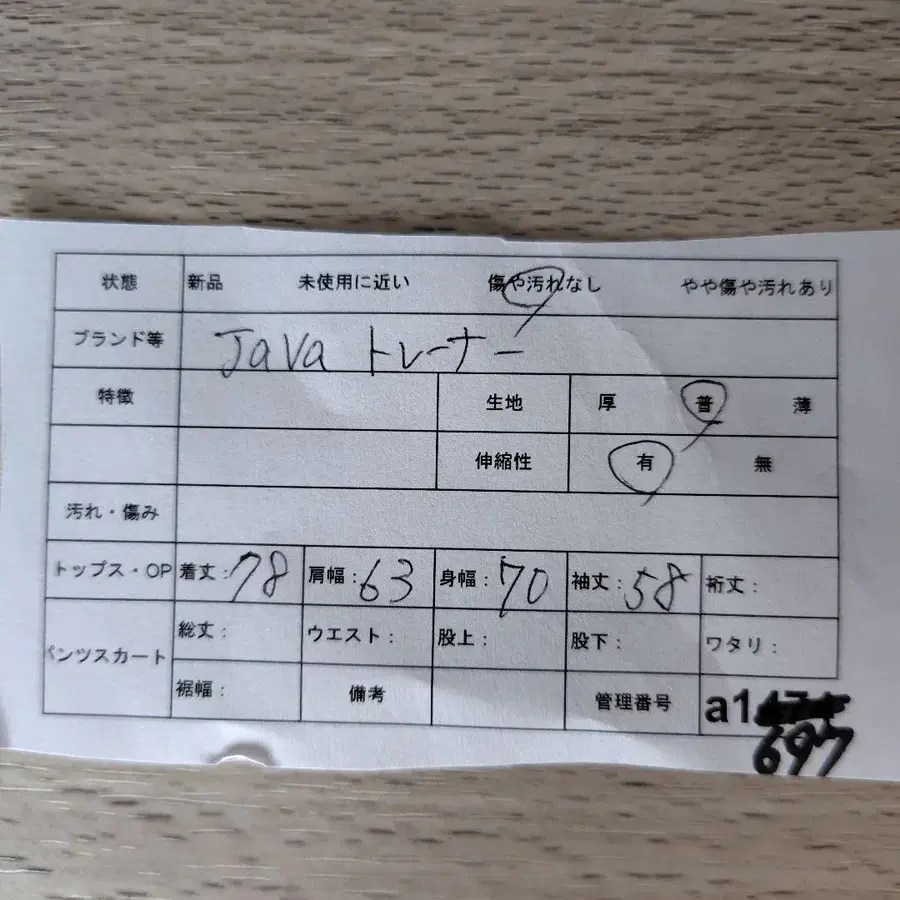 状態 新品 未使用に近い 傷や汚れなし やや傷や汚れあり
ブランド等 Java トレーナー
特徴 生地 厚 普 薄
伸縮性 有 無
汚れ・傷み
トップス・OP 着丈：78 肩幅：63 身幅：70 袖丈：58 裄丈：
パンツスカート 総丈： ウエスト： 股上： 股下： ワタリ：
裾幅： 備考 管理番号 a1
697